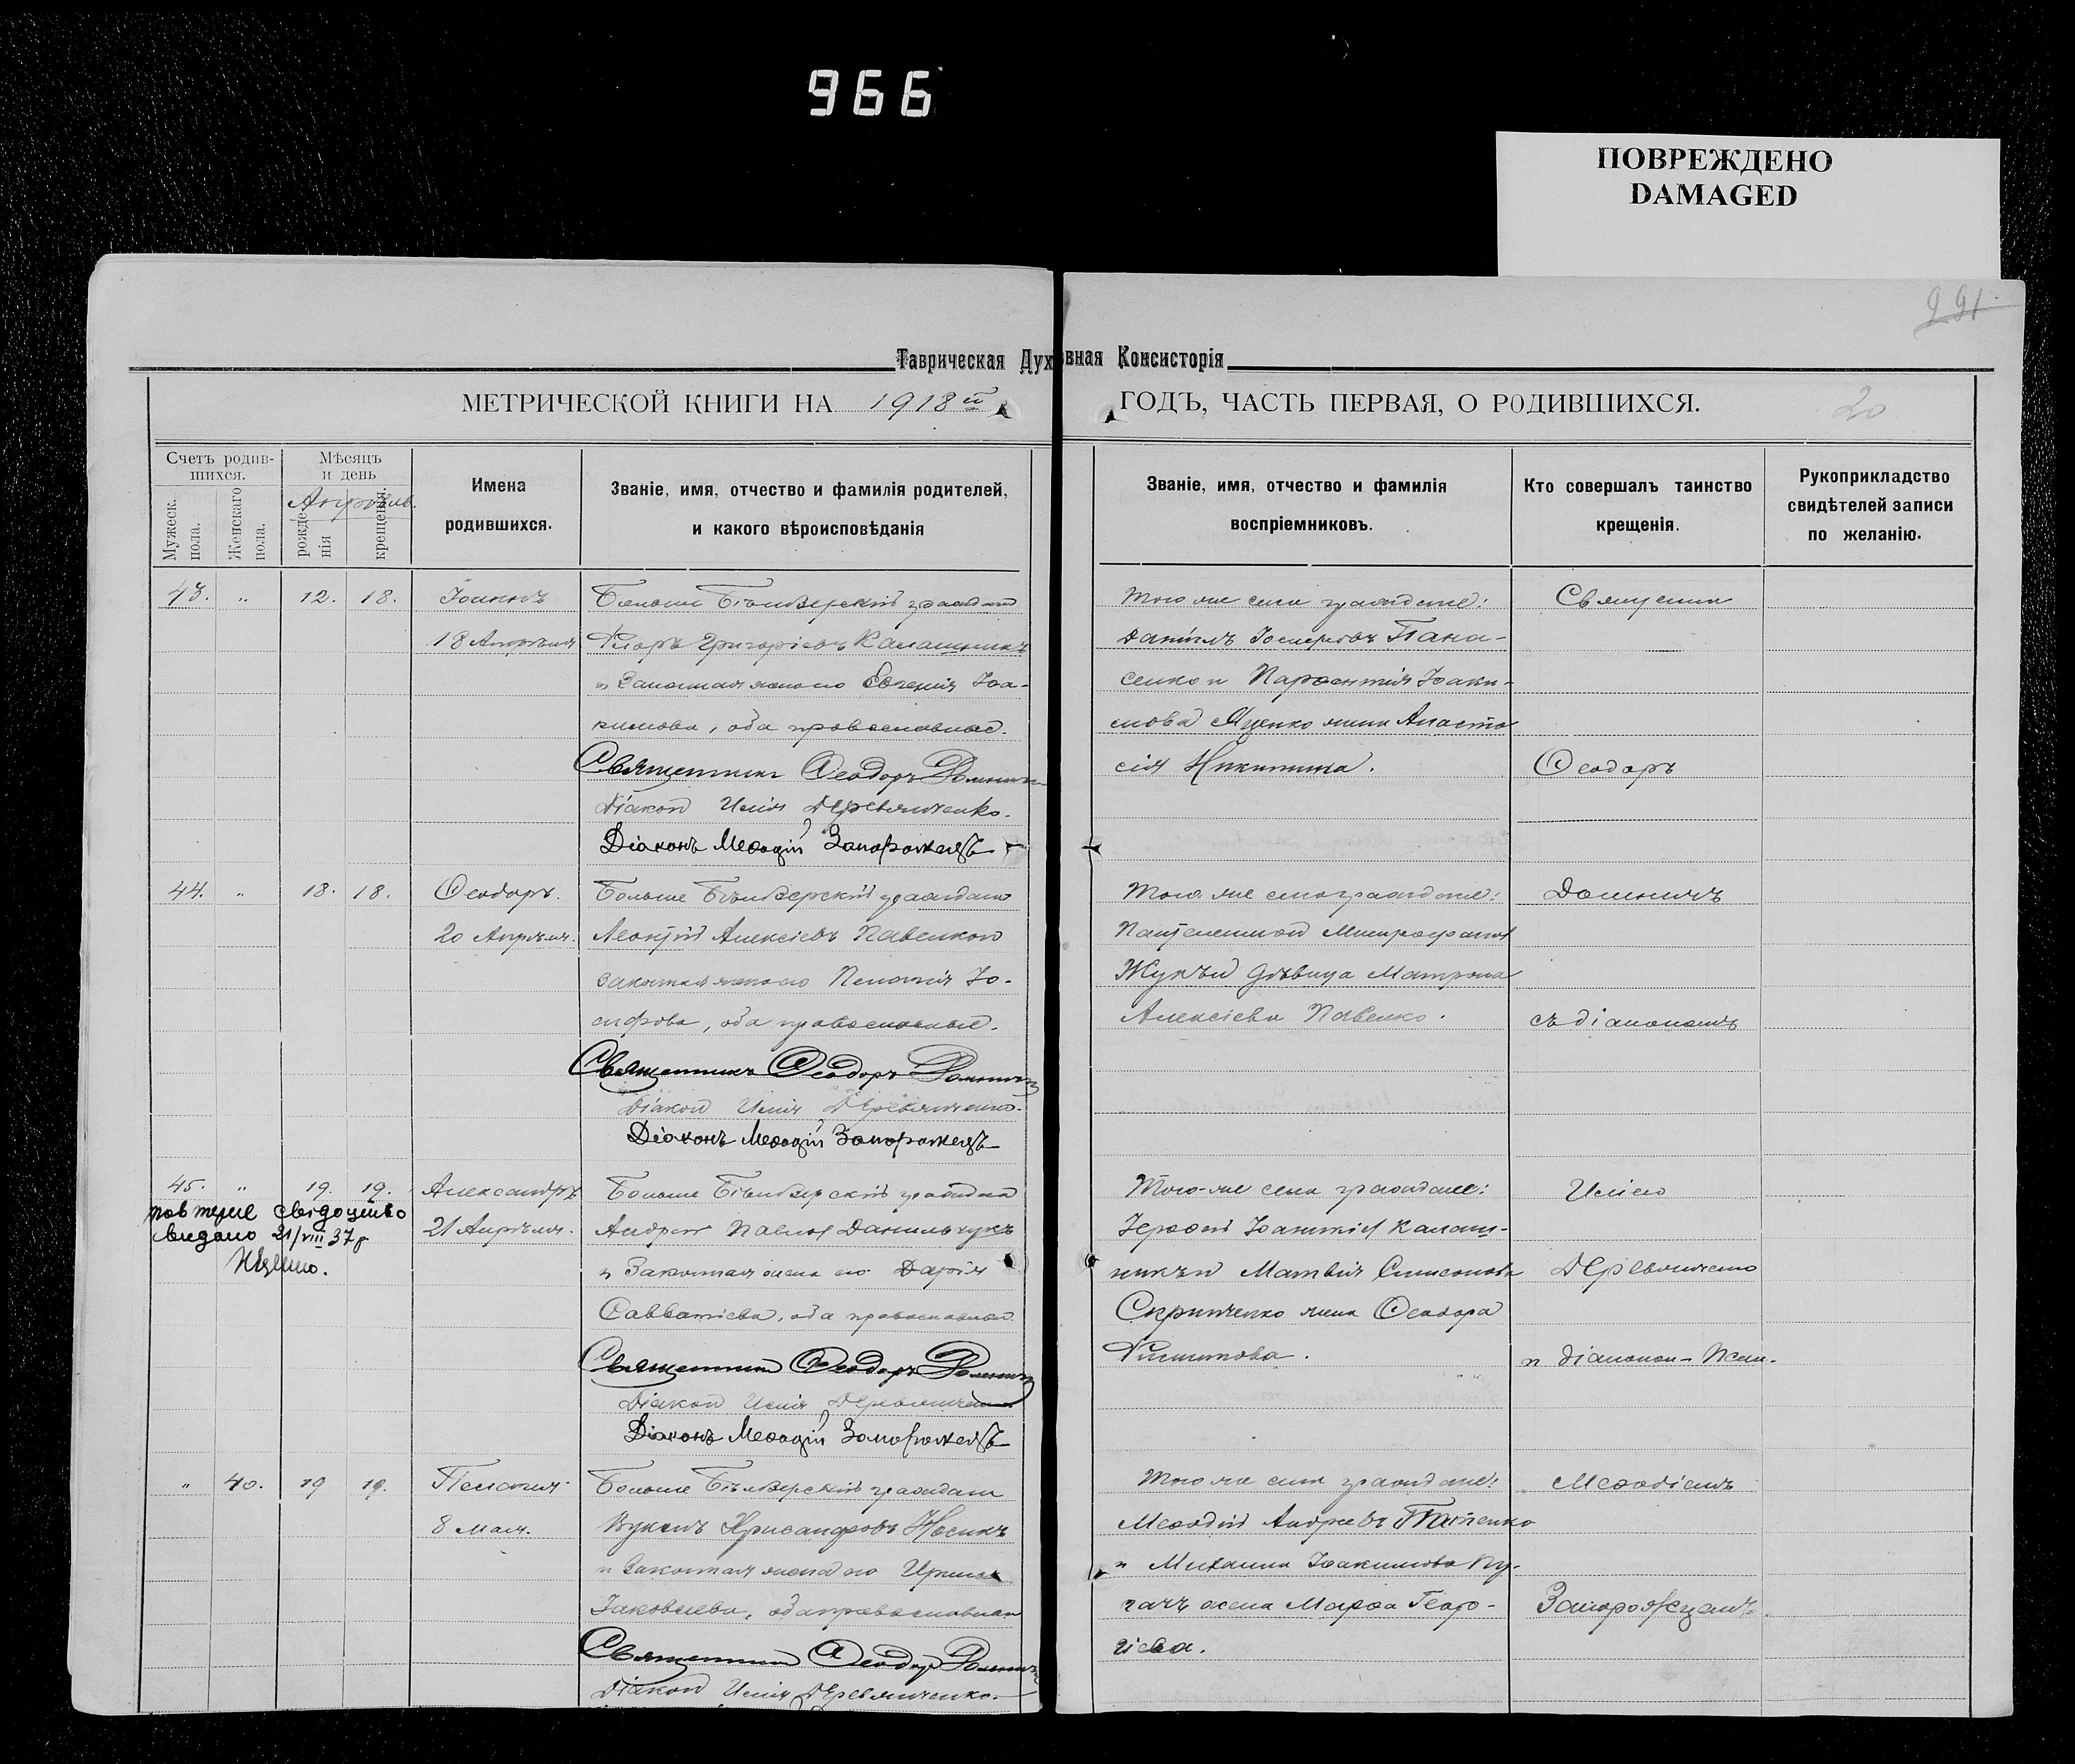 966
ПОВРЕЖДЕНО
DAMAGED
291
Таврическая Духовная Консисторія
МЕТРИЧЕСКОЙ КНИГИ НА 1918й ГОДЪ, ЧАСТЬ ПЕРВАЯ, О РОДИВШИХСЯ.
20
Счетъ родив-
шихся.
Мужеск.
пола.
Женскаго
пола.
Мѣсяцъ
и день
Апрѣль.
рожде
нія
крещенія.
Имена
родившихся.
Званіе, имя, отчество и фамилія родителей,
и какого вѣроисповѣданія
Званіе, имя, отчество и фамилія
воспріемниковъ.
Кто совершалъ таинство
крещенія.
Рукоприкладство
свидѣтелей записи
по желанію.
43. " 12. 18. Іоаннъ
18 Апрѣля
Больше Бѣлозерскій гражданин
Григоріевъ Калашникъ
и Законная жена его Евгенія Іоа-
кимова, оба православные.
Священникъ Ѳеодоръ Домничъ
Діакон Илія Деревянченко.
Діаконъ Меѳодій Запорожецъ
Того же села граждане:
Даніилъ Іосифовъ Пана-
сенко и Іоаки-
мова Мценко жена Анаста
сія Никитина.
Священник
Ѳеодоръ
44. " 18. 18. Ѳеодоръ.
20 Апрѣля.
Больше Бѣлозерскій гражданин
Леонтій Алексіевъ Павленко и
законная жена его Пелагія Іо-
сифова, оба православные.
Священникъ Ѳеодоръ Домничъ
Діакон Илія Деревянченко.
Діаконъ Меѳодій Запорожецъ
Того же села граждане:
Пантелеимон Митрофанов
Жукъ и дѣвица Матрона
Алексіева Павленко.
Домничъ
съ діакономъ
45. " 19. 19. Александръ
21 Апрѣля.
повторне свідоцтво
видано 21/VIII 37 р
Больше Бѣлозерскій гражданин
Андрей Павлов Данильчукъ
и Законная жена его Дарія
Савватіева, оба православные.
Священник Ѳеодоръ Домничъ
Діакон Илія Деревянченко
Діаконъ Меѳодій Запорожецъ
Того-же села граждане:
Іероѳей Іоанникіев Калаш-
никъ и Матвія Симеонова
Скрипченко жена Ѳеодора
Филиппова.
Иліею
Деревянченко
и діаконом-Псал.
" 40. 19 19. Пелагия
8 Мая.
Больше Бѣлозерскій гражданин
Вуколъ Хрисанфовъ Носикъ
и Законная жена его Ирина
Іаковлева, оба православные
Священник Ѳеодоръ Домничъ
Діакон Илія Деревянченко.
Того же села граждане:
Меѳодій Андреевъ
и Михаила Іоакимова Пу-
гачъ жена Марѳа Геор-
гіева.
Меѳодіемъ
Запорожцемъ.